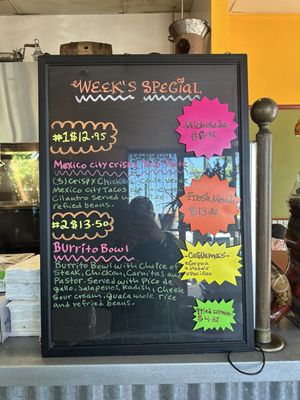 WEEK'S SPECIAL
#1 $12.95
Mexico city crispy
(3) Crispy Chicken
Mexico City Tacos
Cilantro Served
refried beans.
#2 $13.50
Burrito Bowl
Burrito Bowl with Choice of
Steak, Chicken, Carnitas and
Pastor. Served with Pico de
gallo, Jalapeños, Radish, Cheese
Sour cream, guacamole rice
and refried beans.
Michelada
Fresh
Caguamas
Corona
Modelo
Pacifico
Fried